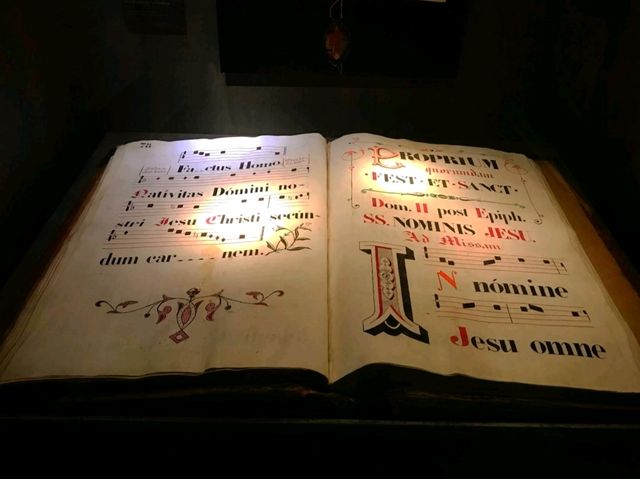 78
Fa...ctus Homo
Nativitas Dómini no-
stri Jesu Christi secún-
dum car---- nem.
PROPRIUM
quorumdam
FEST·ET·SANCT·
Dom. II post Epiph.
SS. NOMINIS JESU.
Ad Missam
IN nómine
Jesu omne